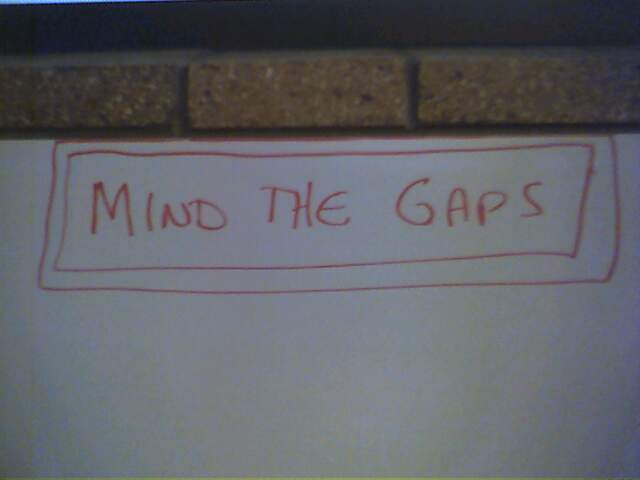 MIND THE GAPS